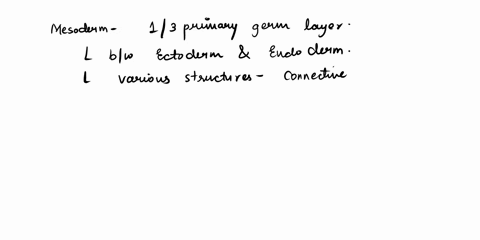 Mesoderm- 1/3 primary germ layer.
L b/w Ectoderm & Endoderm.
L various structures - Connective